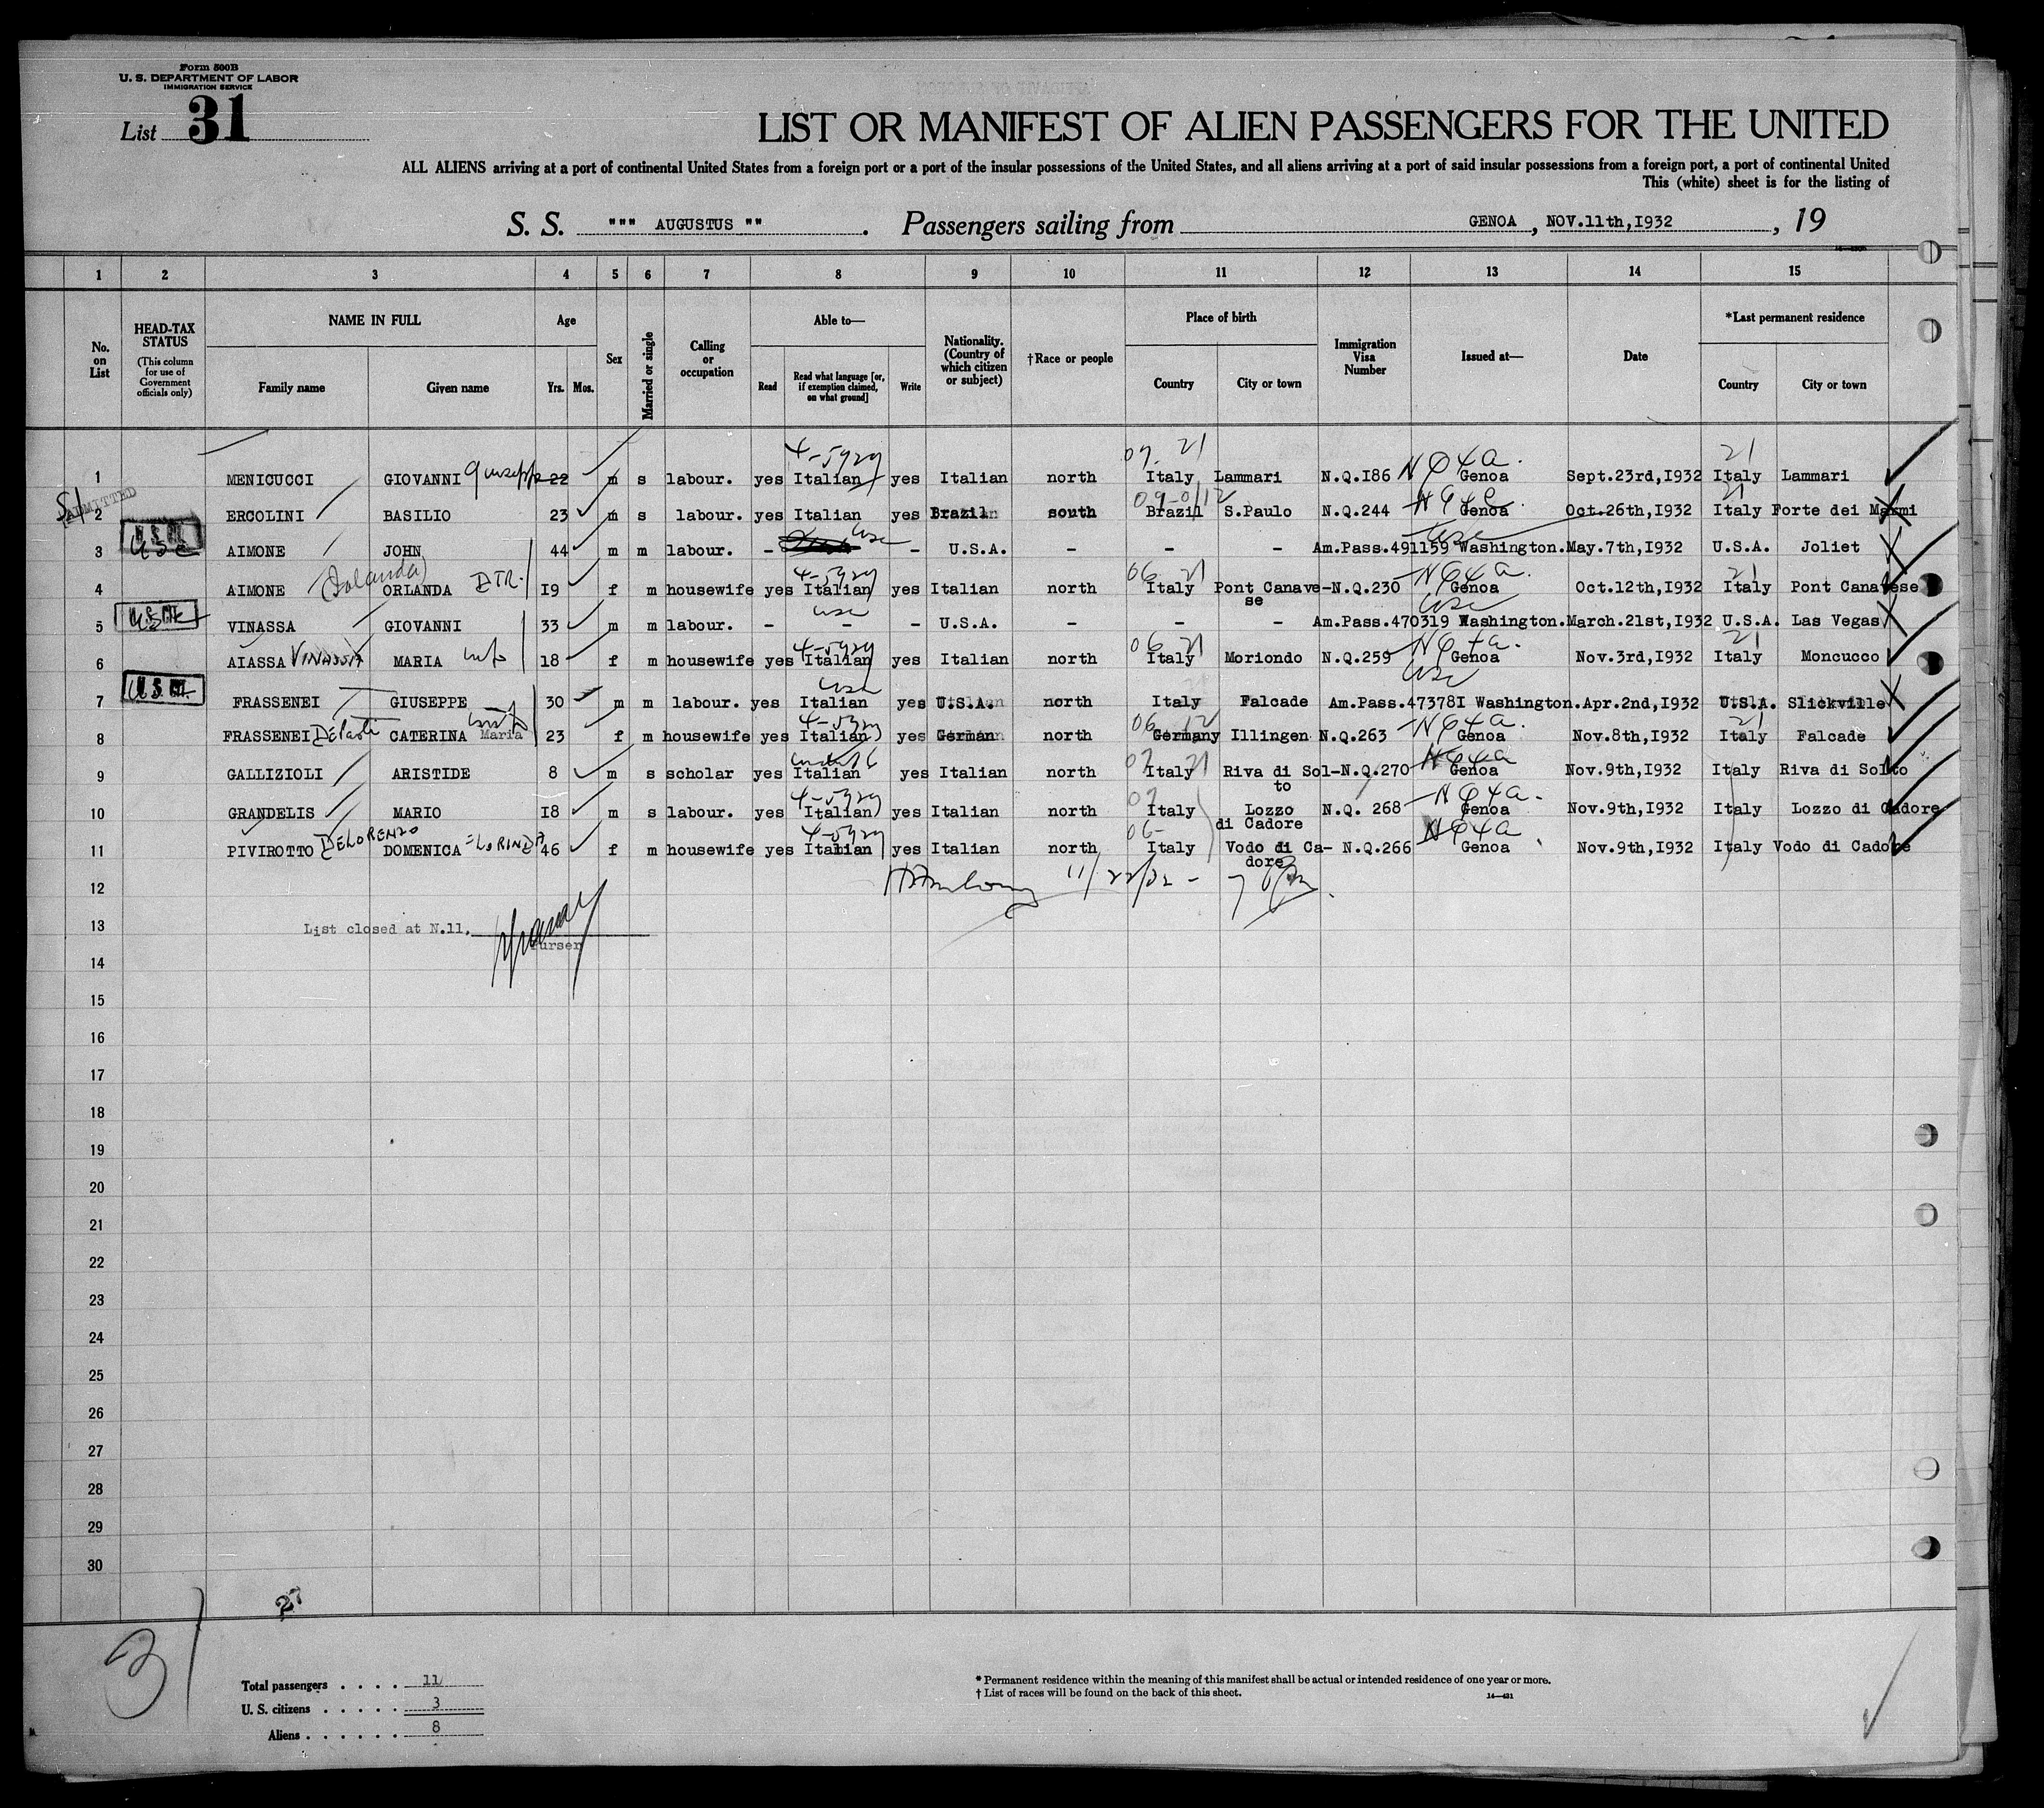 Form 500B
U. S. DEPARTMENT OF LABOR
IMMIGRATION SERVICE
List 31
LIST OR MANIFEST OF ALIEN PASSENGERS FOR THE UNITED
ALL ALIENS arriving at a port of continental United States from a foreign port or a port of the insular possessions of the United States, and all aliens arriving at a port of said insular possessions from a foreign port, a port of continental United
This (white) sheet is for the listing of
S. S. """ AUGUSTUS "" . Passengers sailing from GENOA , NOV.11th,I932 , 19
1 2 3 4 5 6 7 8 9 10 11 12 13 14 15
No. on List
HEAD-TAX STATUS
(This column for use of Government officials only)
NAME IN FULL
Family name Given name
Age
Yrs. Mos.
Sex
Married or single
Calling or occupation
Able to—
Read Read what language [or, if exemption claimed, on what ground] Write
Nationality. (Country of which citizen or subject)
†Race or people
Place of birth
Country City or town
Immigration Visa Number
Issued at—
Date
*Last permanent residence
Country City or town
07- 21 21
1 MENICUCCI GIOVANNI Giuseppe 22 m s labour. yes Italian yes Italian north Italy Lammari N.Q.I86 NQ4a. Genoa Sept.23rd,I932 Italy Lammari
ADMITTED
2 ERCOLINI BASILIO 23 m s labour. yes Italian yes Brazil south Brazil S.Paulo N.Q.244 Genoa Oct.26th,I932 Italy Forte dei Marmi
usc
3 AIMONE JOHN 44 m m labour. - usc - U.S.A. - - - Am.Pass.491159 Washington.May.7th,I932 U.S.A. Joliet
(Iolanda) 06 21 21
4 AIMONE ORLANDA DTR. I9 f m housewife yes Italian yes Italian north Italy Pont Canave- N.Q.230 NQ4a. Genoa Oct.12th,I932 Italy Pont Canavese
se
usc usc
5 VINASSA GIOVANNI 33 m m labour. - - - U.S.A. - - - Am.Pass.470319 Washington.March.21st,I932 U.S.A. Las Vegas
06 21 21
6 AIASSA VINASSA MARIA wife 18 f m housewife yes Italian yes Italian north Italy Moriondo N.Q.259 NQ4a. Genoa Nov.3rd,I932 Italy Moncucco
usc usc
7 FRASSENEI GIUSEPPE 30 m m labour. yes Italian yes U.S.A. north Italy Falcade Am.Pass.47378I Washington.Apr.2nd,I932 U.S.A. Slickville
wife 06 12 21
8 FRASSENEI CATERINA Maria 23 f m housewife yes Italian yes German north Germany Illingen N.Q.263 NQ4a. Genoa Nov.8th,I932 Italy Falcade
under 16 07 21
9 GALLIZIOLI ARISTIDE 8 m s scholar yes Italian yes Italian north Italy Riva di Sol- N.Q.270 NQ4a Genoa Nov.9th,I932 Italy Riva di Solto
to
07
10 GRANDELIS MARIO I8 m s labour. yes Italian yes Italian north Italy Lozzo N.Q. 268 NQ4a. Genoa Nov.9th,I932 Italy Lozzo di Cadore
di Cadore
06-
11 PIVIROTTO DELORENZO DOMENICA =LORINDA 46 f m housewife yes Italian yes Italian north Italy Vodo di Ca- N.Q.266 NQ4a Genoa Nov.9th,I932 Italy Vodo di Cadore
dore
12 11/22/32 -
13 List closed at N.11.
Purser
14
15
16
17
18
19
20
21
22
23
24
25
26
27
28
29
30
31
Total passengers . . . . 11
U. S. citizens . . . . . 3
Aliens . . . . . . 8
* Permanent residence within the meaning of this manifest shall be actual or intended residence of one year or more.
† List of races will be found on the back of this sheet.
14—421